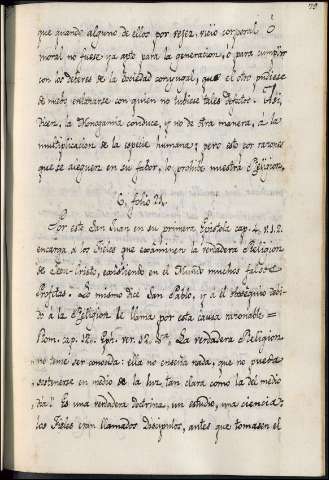 79
que quando alguno de ellos por vejez, vicio corporal, ó
moral no fuese ya apto para la generacion, ó para cumplir
con los deberes de la sociedad conyugal, que el otro pudiese
de nuevo enlazarse con quien no tubiese tales defectos. Asi,
dicen, la Monogamia conduce, y no de otra manera, a la
multiplicacion de la especie humana; pero esto por razones
que se aleguen en su fabor, lo prohibe nuestra Religion.
C, folio 21.
Por esto San Juan en su primera Epistola cap. 4. v. 1. 2.
encarga a los Fieles que examinen la verdadera Religion
de Jesu-Cristo, existiendo en el Mundo muchos falsos
Profetas. Lo mismo dice San Pablo, y á el obsequio debi-
do á la Religion le llama por esta causa razonable =
Rom. cap. 12. ver. 12. La verdadera Religion
no teme ser conocida: ella no enseña nada, que no pueda
sostenerse en medio de la luz, tan clara como la del medio
dia. Es una verdadera doctrina, un estudio, una ciencia:
los Fieles eran llamados Discipulos, antes que tomasen el